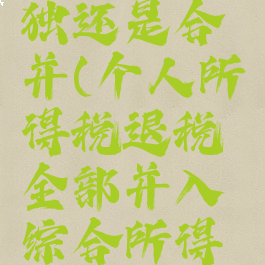 独还是合
并(个人所
得税退税
全部并入
综合所得